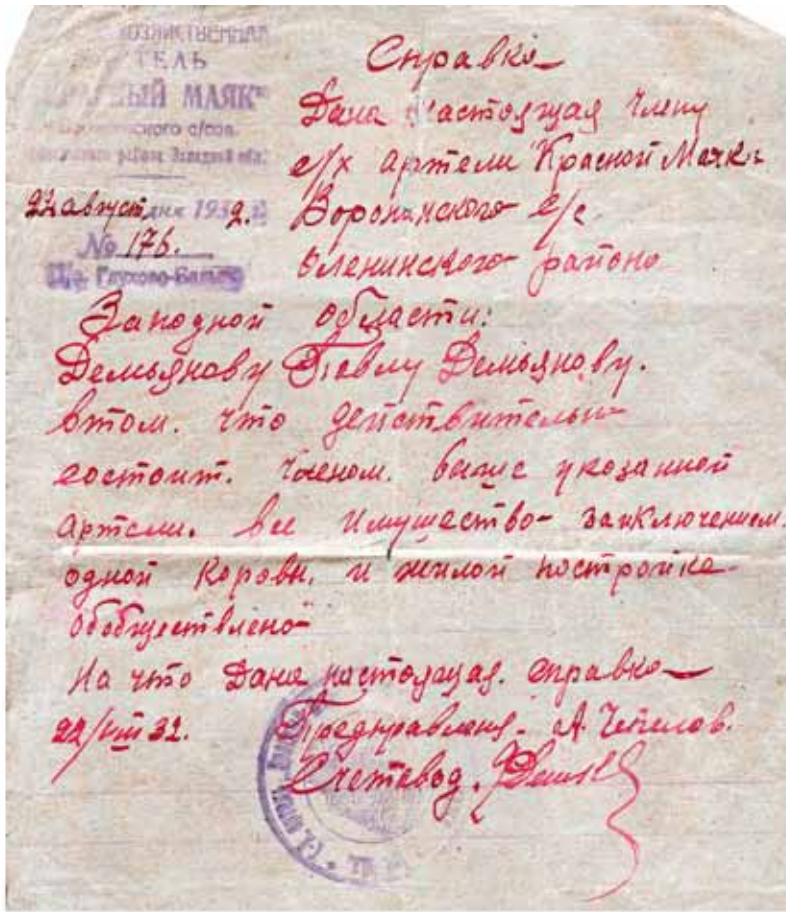 ТЕЛЬ
МАЯК"
с/сов.
Западной обл.
22 август дня 1932 г.
№ 176.
Глухово
Справка
Дана настоящая члену
с/х артели Красной Маяк
Воронинского с/с
Оленинского района
Западной области:
Демьянову Павлу Демьянову.
втом. что действительно
состоит. членом. выше указанной
артели. все имущество заиключением
одной коровы. и жилой постройка
обобществлено
На что дана настоящая. справка
22/VIII 32. Предправления. А. Чепелов.
Счетовод.